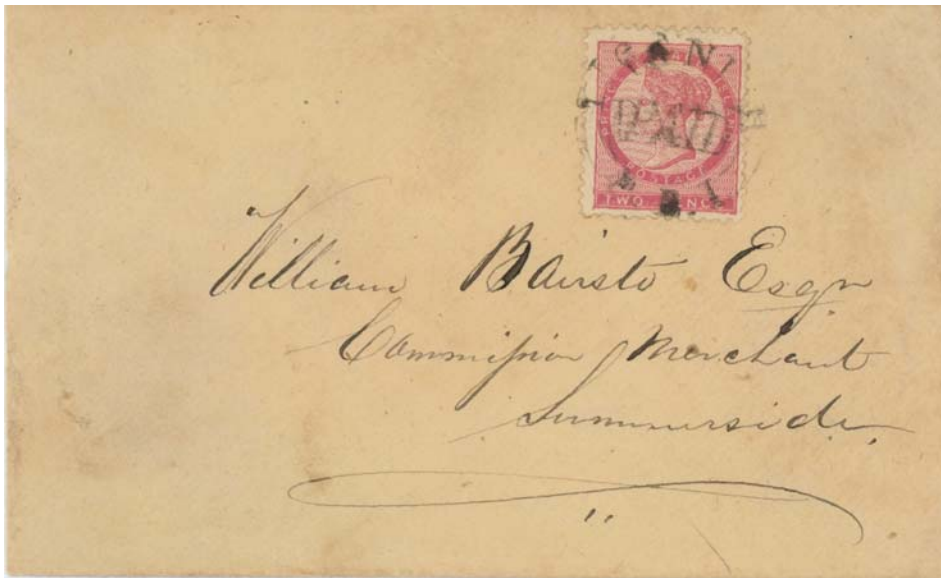 PRINCE EDWARD ISLAND
POSTAGE
TWO PENCE
PAID
P.E.I.
William Bairsto Esqr
Commission Merchant
Summerside.